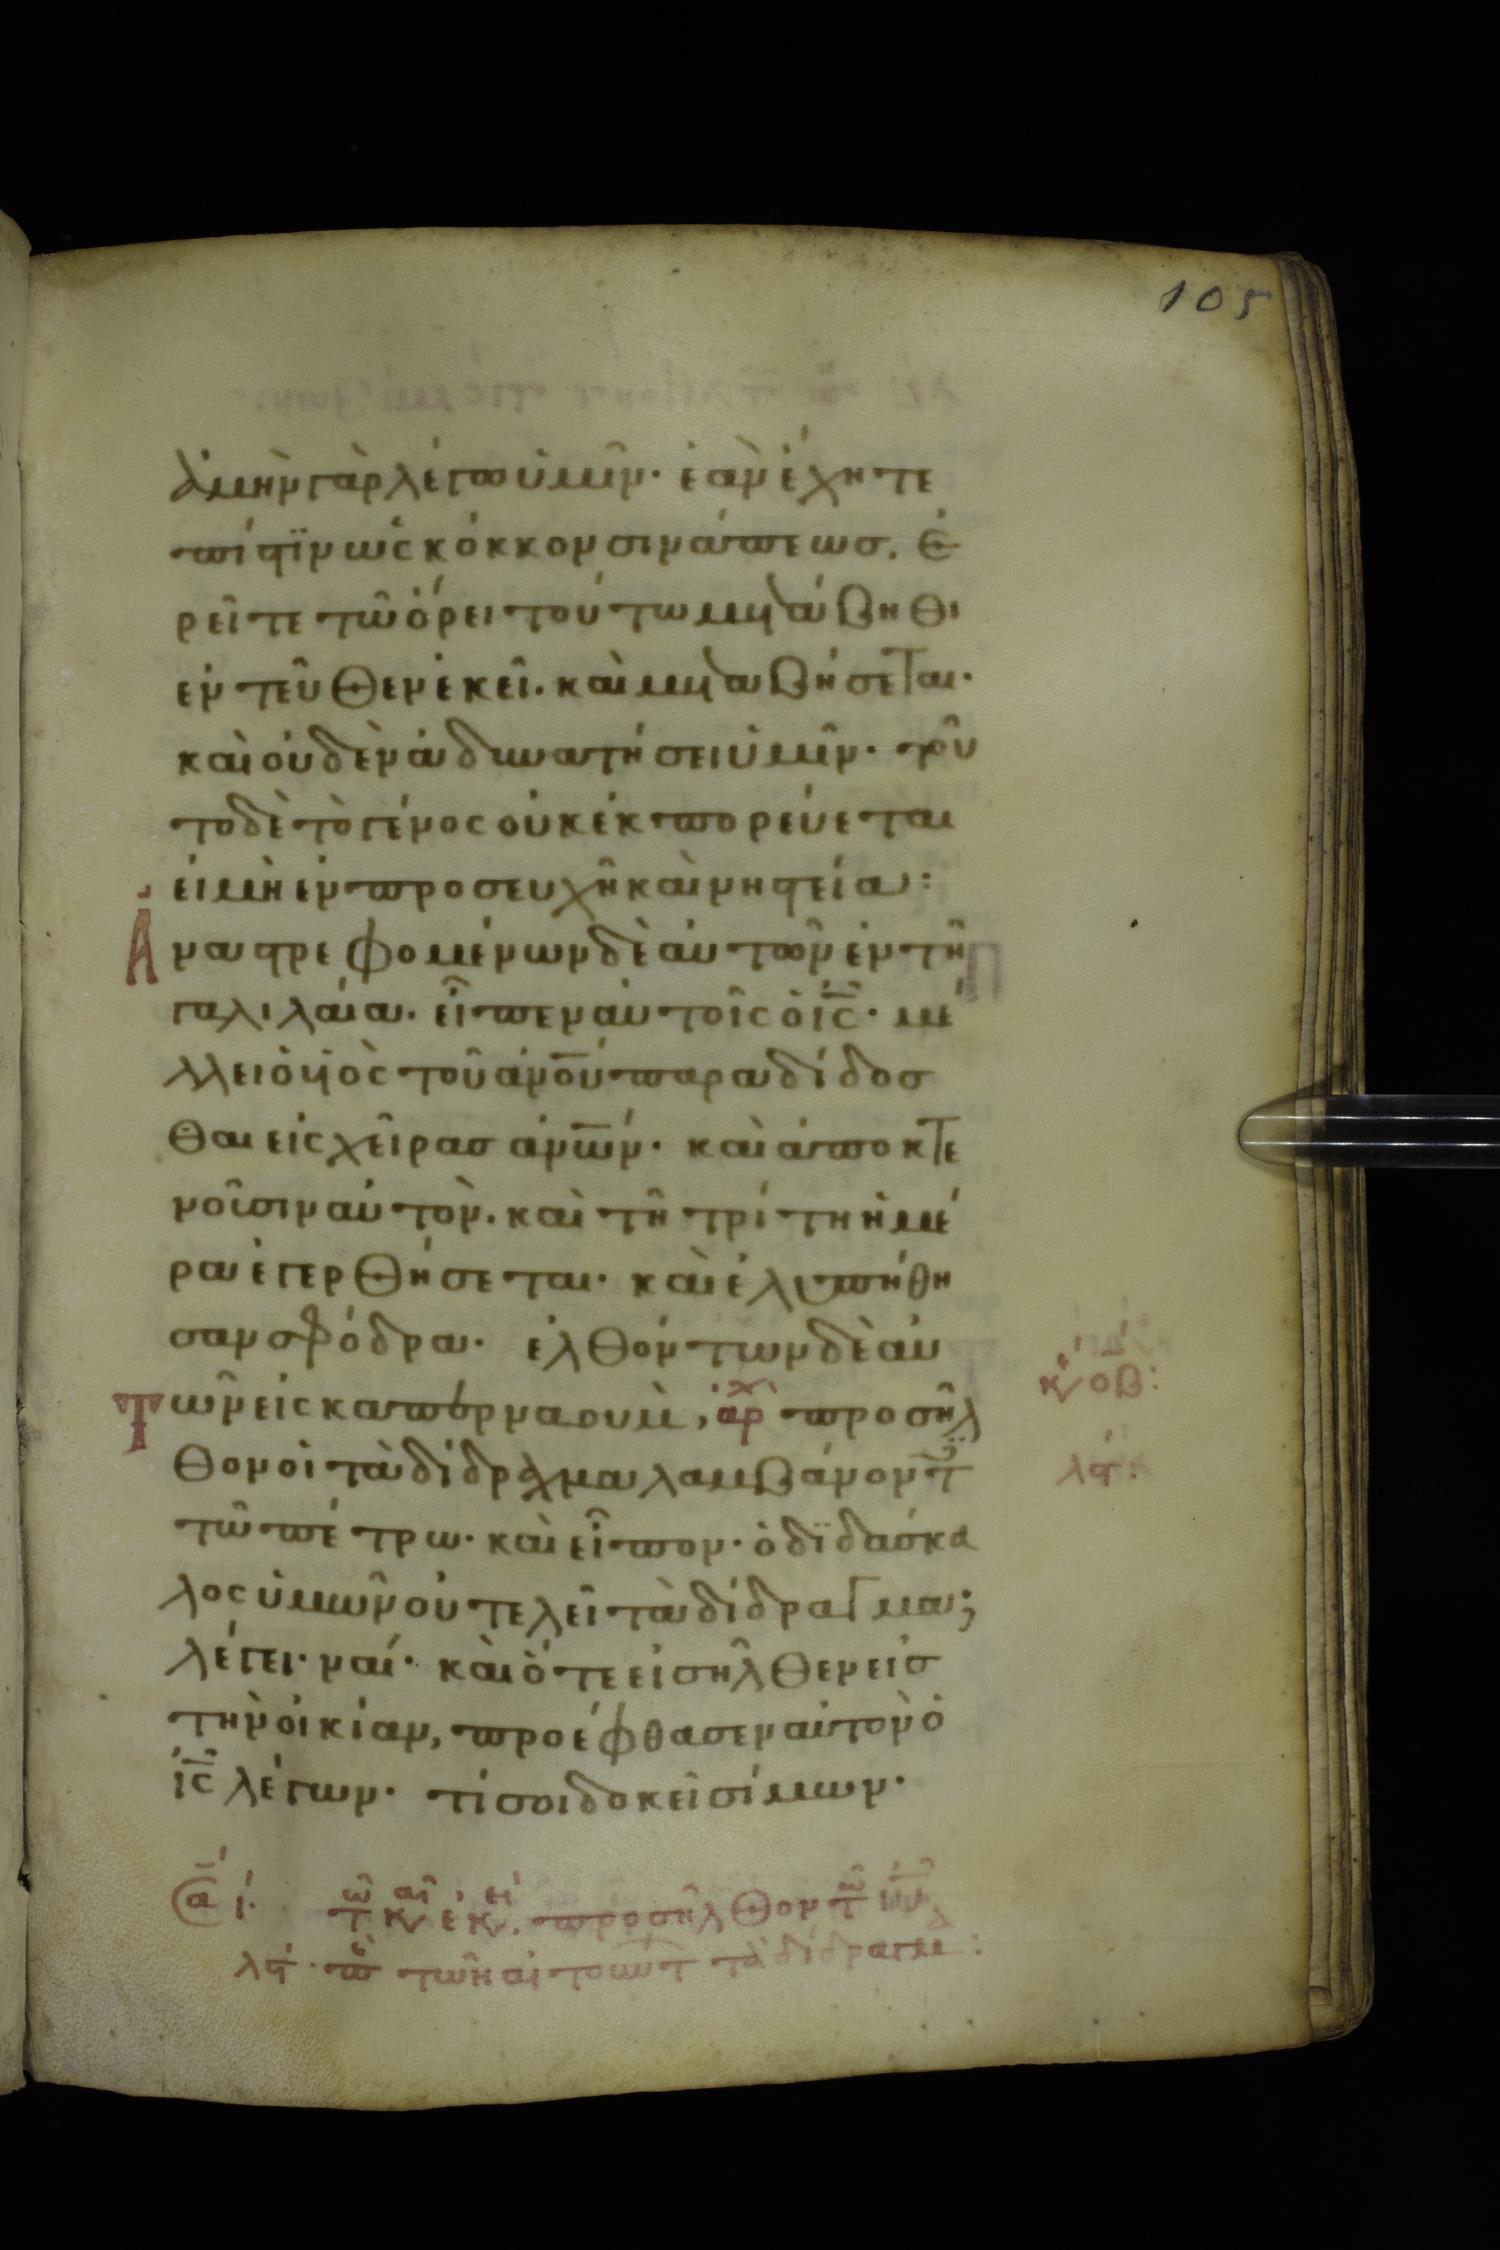 105
ἀμὴν γὰρ λέγω ὑμῖν· ἐὰν ἔχητε
πίστϊν ὡς κόκκον σινάπεως. ἐ
ρεῖτε τῶ ὄρει τούτω μετάβηθι
ἐντεῦθεν ἐκεῖ. καὶ μεταβήσεται·
καὶ οὐδὲν ἀδυνατήσει ὑμῖν· τοῦ
το δὲ τὸ γένος οὐκ ἐκπορεύεται
εἰ μὴ ἐν προσευχῆ καὶ νηστεία:
Ἀναστρεφομένων δὲ αὐτῶν ἐν τῆ
γαλιλαία. εἶπεν αὐτοῖς ὁ ἰς· μέ
λλει ὁ υἱὸς τοῦ ἀνου παραδίδοσ
θαι εἰς χεῖρασ ἀνων· καὶ ἀποκτε
νοῦσιν αὐτὸν. καὶ τῆ τρίτη ἡμέ
ρα ἐγερθήσεται· καὶ ἐλυπήθη
σαν σφόδρα· ἐλθόντων δὲ αὐ
Τῶν εἰς καπερναουμ, ἀρχ προσῆλ
θον οἱ τὰ δίδραχμα λαμβάνοντ
τῶ πέτρω· καὶ εἶπον· ὁ δϊδάσκα
λος ὑμῶν οὐ τελεῖ τὰ δίδραγμα;
λέγει· ναί· καὶ ὅτε εἰσῆλθεν εἰσ
τὴν οἰκίαν, προέφθασεν αὐτὸν ὁ
ἰς λέγων· τί σοι δοκεῖ σίμων·
κ οβ: